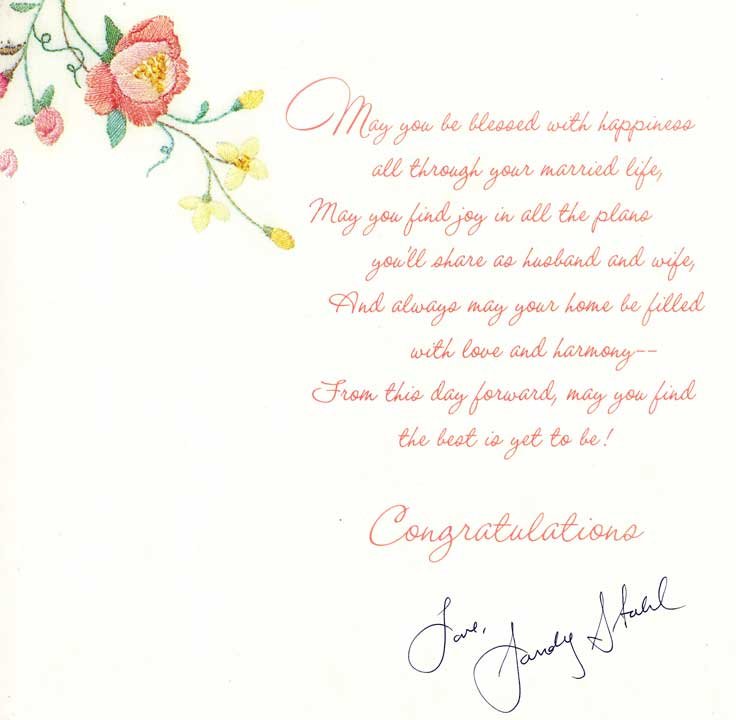 May you be blessed with happiness
all through your married life,
May you find joy in all the plans
you'll share as husband and wife,
And always may your home be filled
with love and harmony--
From this day forward, may you find
the best is yet to be!
Congratulations
Love, Sandy Stahl